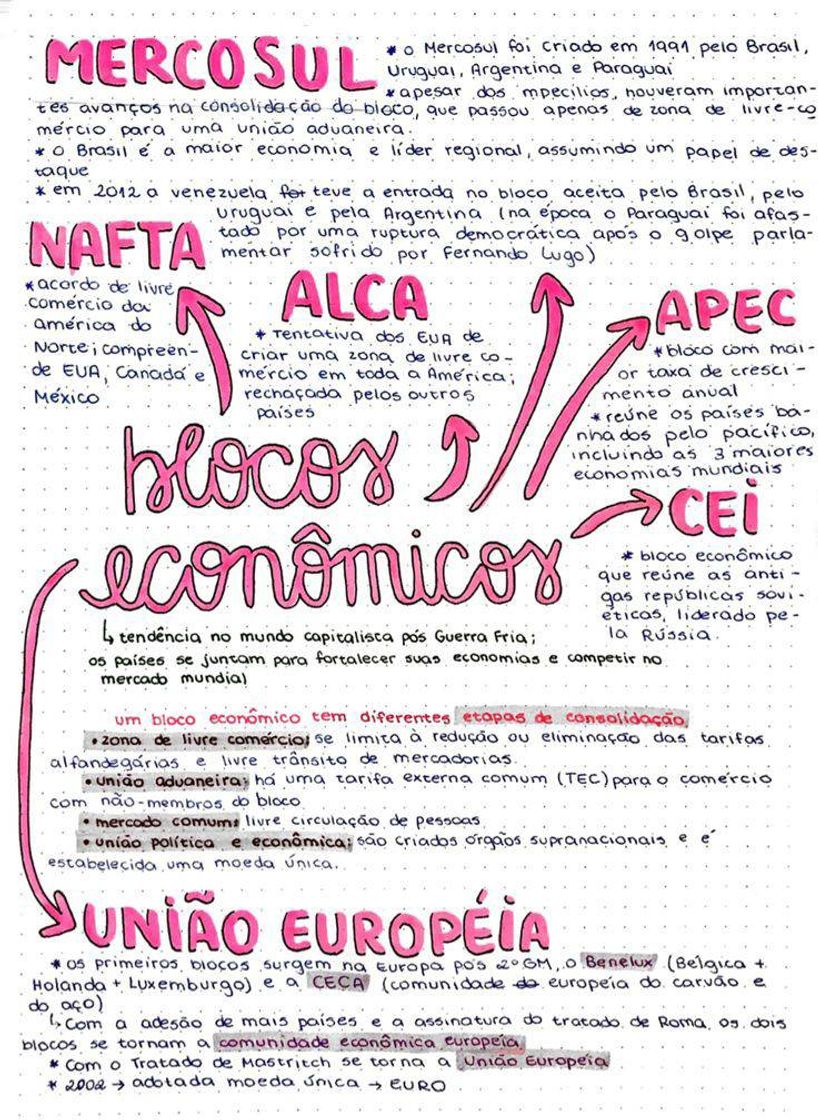 MERCOSUL
* o Mercosul foi criado em 1991 pelo Brasil,
Uruguai, Argentina e Paraguai
* apesar dos mpecilios, houveram importan-
tes avanços na consolidação do bloco, que passou apenas de zona de livre-co
mércio para uma união aduaneira.
* o Brasil é a maior economia e líder regional, assumindo um papel de des-
taque
* em 2012 a venezuela teve a entrada no bloco aceita pelo Brasil, pelo
uruguai e pela Argentina (na época o Paraguai foi afas-
tado por uma ruptura democrática após o golpe parla-
mentar sofrido por Fernando Lugo)
NAFTA
* acordo de livre
comércio da
américa do
Norte; compreen-
de EUA, Canadá e
México
ALCA
* Tentativa dos EUA de
criar uma zona de livre co-
mércio em toda a América;
rechaçada pelos outros
países
APEC
* bloco com mai-
or taxa de cresci-
mento anual
* reúne os países ba-
nhados pelo pacífico,
incluindo as 3 maiores
economias mundiais
CEi
* bloco econômico
que reúne as anti-
gas repúblicas sovi-
éticas, liderado pe-
la Rússia.
blocos
econômicos
↳ tendência no mundo capitalista pós Guerra Fria;
os países se juntam para fortalecer suas economias e competir no
mercado mundial
um bloco econômico tem diferentes etapas de consolidação
• zona de livre comércio; se limita à redução ou eliminação das tarifas
alfandegárias e livre trânsito de mercadorias.
• união aduaneira; há uma tarifa externa comum (TEC) para o comércio
com não-membros do bloco
• mercado comum; livre circulação de pessoas
• união política e econômica; são criados órgãos supranacionais e é
estabelecida uma moeda única.
UNIÃO EUROPÉIA
* os primeiros blocos surgem na Europa pós 2º GM, o Benelux (Bélgica +
Holanda + Luxemburgo) e a CECA (comunidade europeia do carvão e
do aço)
↳ Com a adesão de mais países e a assinatura do tratado de Roma, os dois
blocos se tornam a comunidade econômica europeia
* Com o Tratado de Mastritch se torna a União Europeia
* 2002 → adotada moeda única → EURO